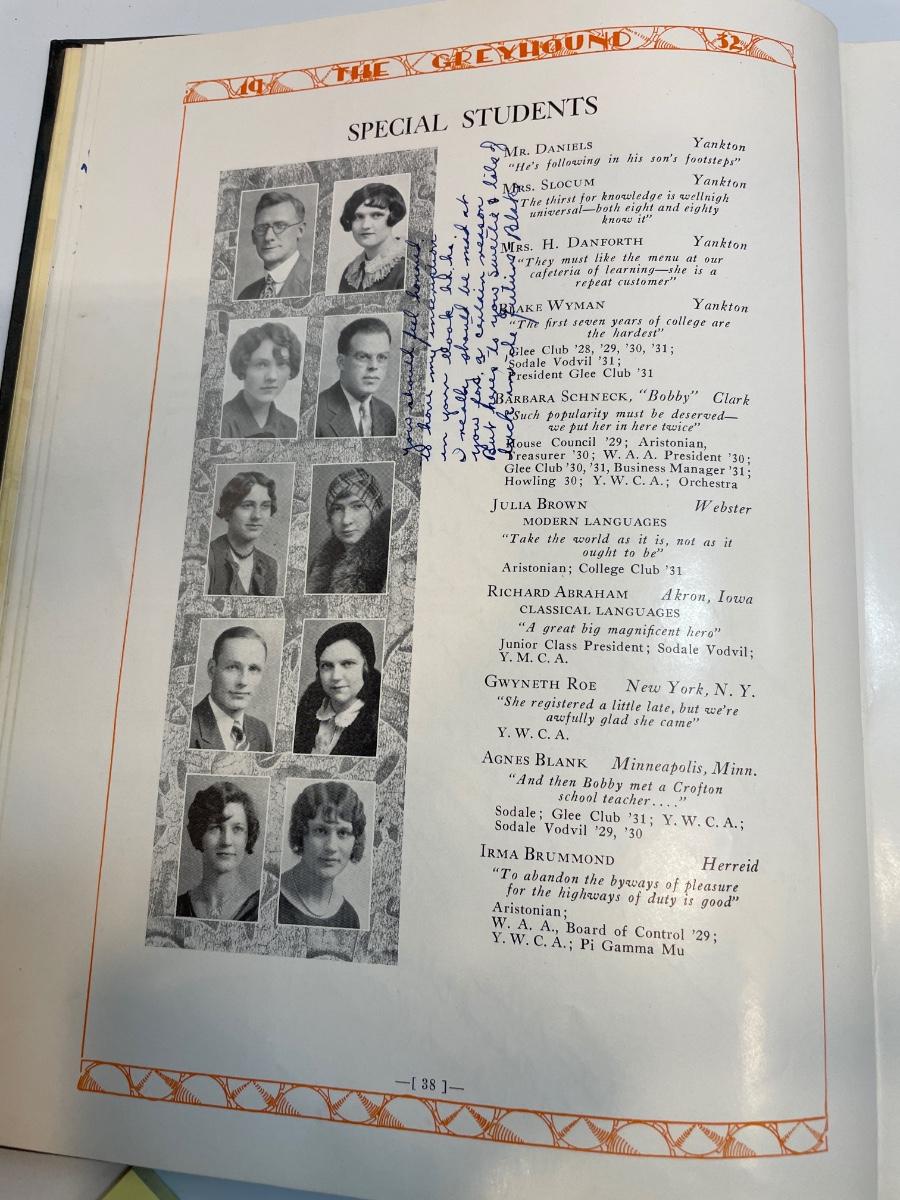 19 THE GREYHOUND 32
SPECIAL STUDENTS
MR. DANIELS Yankton
"He's following in his son's footsteps"
MRS. SLOCUM Yankton
"The thirst for knowledge is wellnigh
universal—both eight and eighty
know it"
MRS. H. DANFORTH Yankton
"They must like the menu at our
cafeteria of learning—she is a
repeat customer"
BLAKE WYMAN Yankton
"The first seven years of college are
the hardest"
Glee Club '28, '29, '30, '31;
Sodale Vodvil '31;
President Glee Club '31
BARBARA SCHNECK, "Bobby" Clark
"Such popularity must be deserved—
we put her in here twice"
House Council '29; Aristonian,
Treasurer '30; W. A. A. President '30;
Glee Club '30, '31, Business Manager '31;
Howling 30; Y. W. C. A.; Orchestra
JULIA BROWN Webster
MODERN LANGUAGES
"Take the world as it is, not as it
ought to be"
Aristonian; College Club '31
RICHARD ABRAHAM Akron, Iowa
CLASSICAL LANGUAGES
"A great big magnificent hero"
Junior Class President; Sodale Vodvil;
Y. M. C. A.
GWYNETH ROE New York, N. Y.
"She registered a little late, but we're
awfully glad she came"
Y. W. C. A.
AGNES BLANK Minneapolis, Minn.
"And then Bobby met a Crofton
school teacher...."
Sodale; Glee Club '31; Y. W. C. A.;
Sodale Vodvil '29, '30
IRMA BRUMMOND Herreid
"To abandon the byways of pleasure
for the highways of duty is good"
Aristonian;
W. A. A., Board of Control '29;
Y. W. C. A.; Pi Gamma Mu
You should feel honored
to have my
in your book
I really should be mad at
you for a certain reason
But here's to you sweetie & lots of
luck in the future Blake
—[ 38 ]—